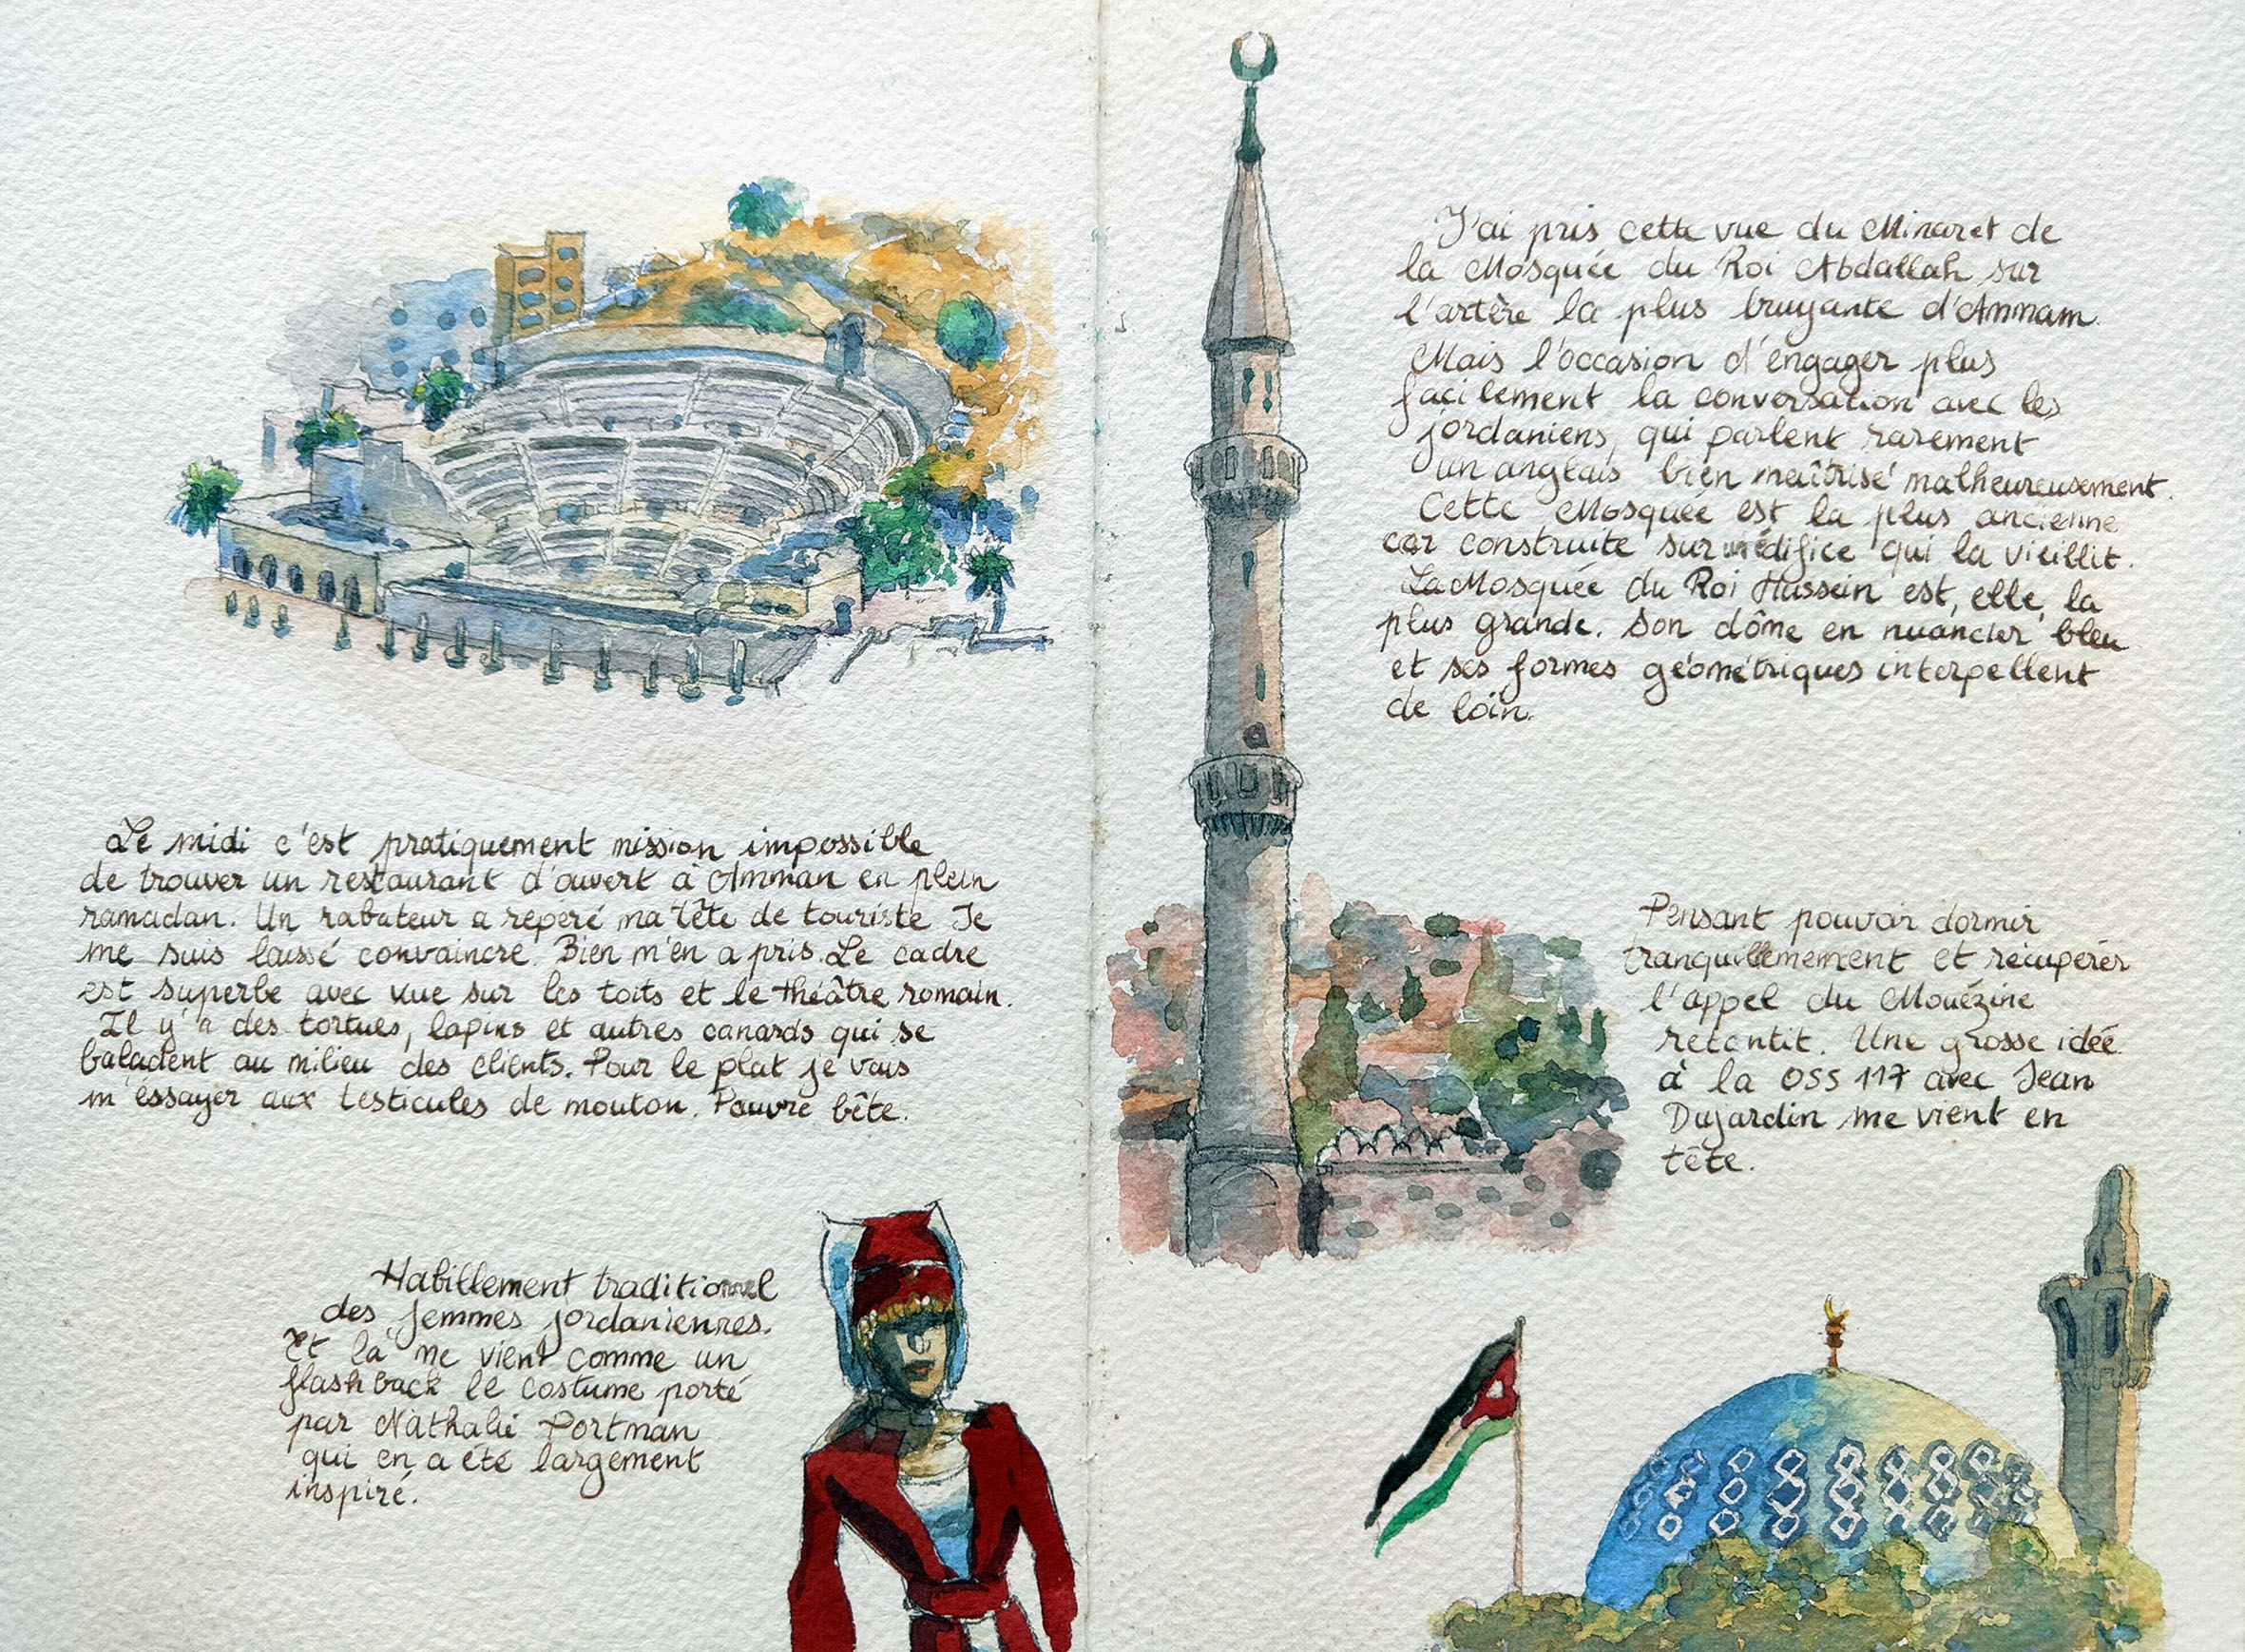 Le midi c'est pratiquement mission impossible
de trouver un restaurant d'ouvert à Amman en plein
ramadan. Un rabateur a repéré ma tête de touriste Je
me suis laissé convaincre. Bien m'en a pris. Le cadre
est superbe avec vue sur les toits et le théâtre romain.
Il y'a des tortues, lapins et autres canards qui se
baladent au milieu des clients. Pour le plat je vais
m'éssayer aux testicules de mouton. Pauvre bête.
Habillement traditionnel
des femmes jordaniennes.
Et là me vient comme un
flashback le costume porté
par Nathalie Portman
qui en a été largement
inspiré.
J'ai pris cette vue du Minaret de
la Mosquée du Roi Abdallah sur
l'artère la plus bruyante d'Ammam.
Mais l'occasion d'engager plus
facilement la conversation avec les
jordaniens, qui parlent rarement
un anglais bien maîtrisé malheureusement.
Cette Mosquée est la plus ancienne
car construite sur un édifice qui la vieillit.
La Mosquée du Roi Hussein est, elle, la
plus grande. Son dôme en nuancier bleu
et ses formes géométriques interpellent
de loin.
Pensant pouvoir dormir
tranquillemement et récupérer
l'appel du Mouézine
retentit. Une grosse idée
à la OSS 117 avec Jean
Dujardin me vient en
tête.